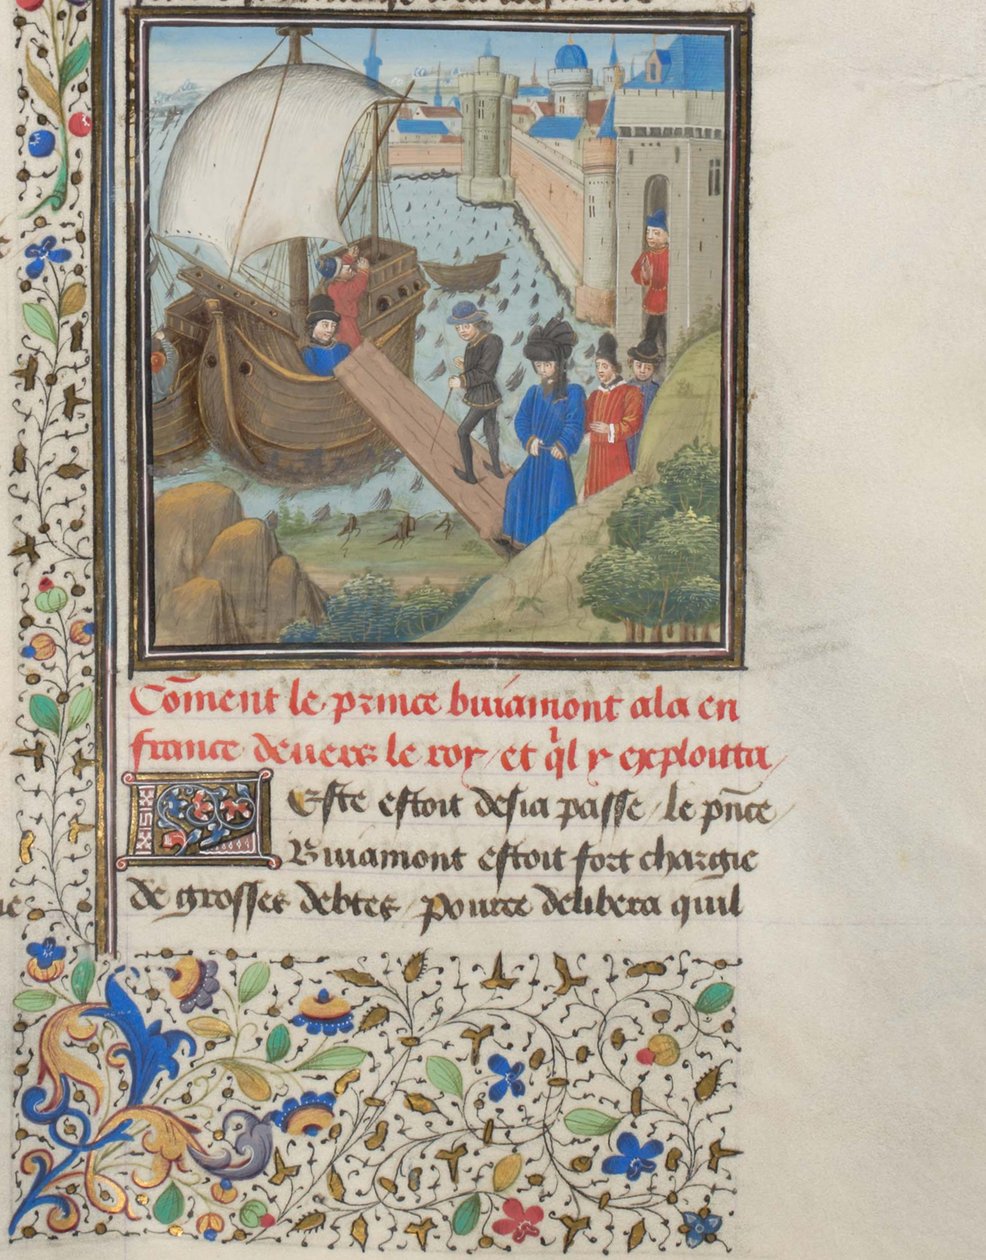 Cõment le prince buiamont ala en
france deuers le roy / et ql y exploitta /
Este estoit desia passe / le pñce
Buiamont estoit fort chargie
de grosses debtes / pource delibera quil